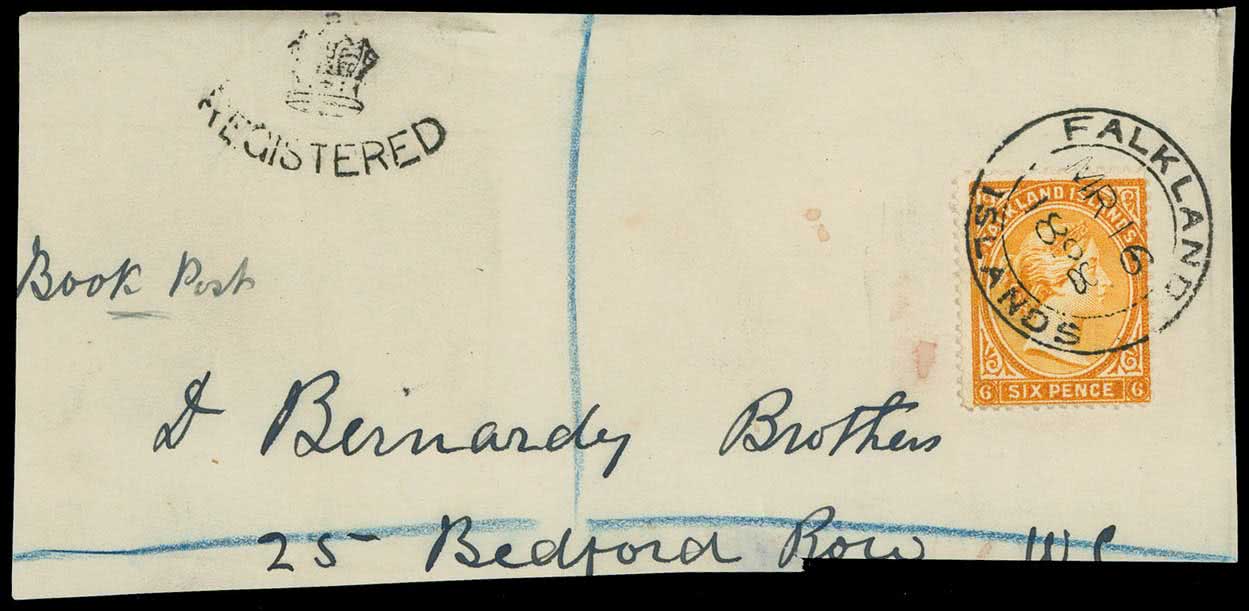 REGISTERED
FALKLAND ISLANDS
MR 16
1898
FALKLAND ISLANDS
6 SIX PENCE 6
Book Post
D Bernardy Brothers
25 Bedford Row WC